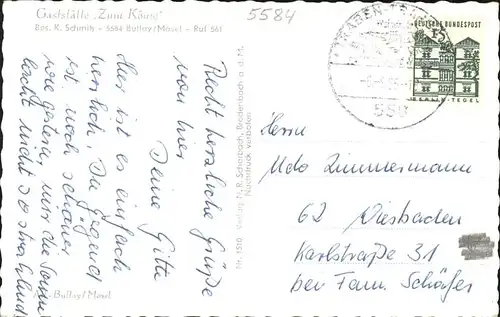 Gaststätte „Zum König"
Bes. K. Schmitz - 5584 Bullay/Mosel - Ruf 561
5584
DEUTSCHE BUNDESPOST
15
BERLIN-TEGEL
TRABEN-
558
Hier ist es einfach
herrlich, die Gegend
ist noch schöner
wie gestern, nur die Sonne
lacht nicht so
Recht herzliche Grüße
von hier
Deine Gitta
Bullay/Mosel
Nr. 1510 Verlag H. R. Schirpach, Brodenbach a. d. M.
Nachdruck verboten
Herrn
Udo Zimmermann
62 Wiesbaden
Karlstraße 31
bei Fam. Schäfer